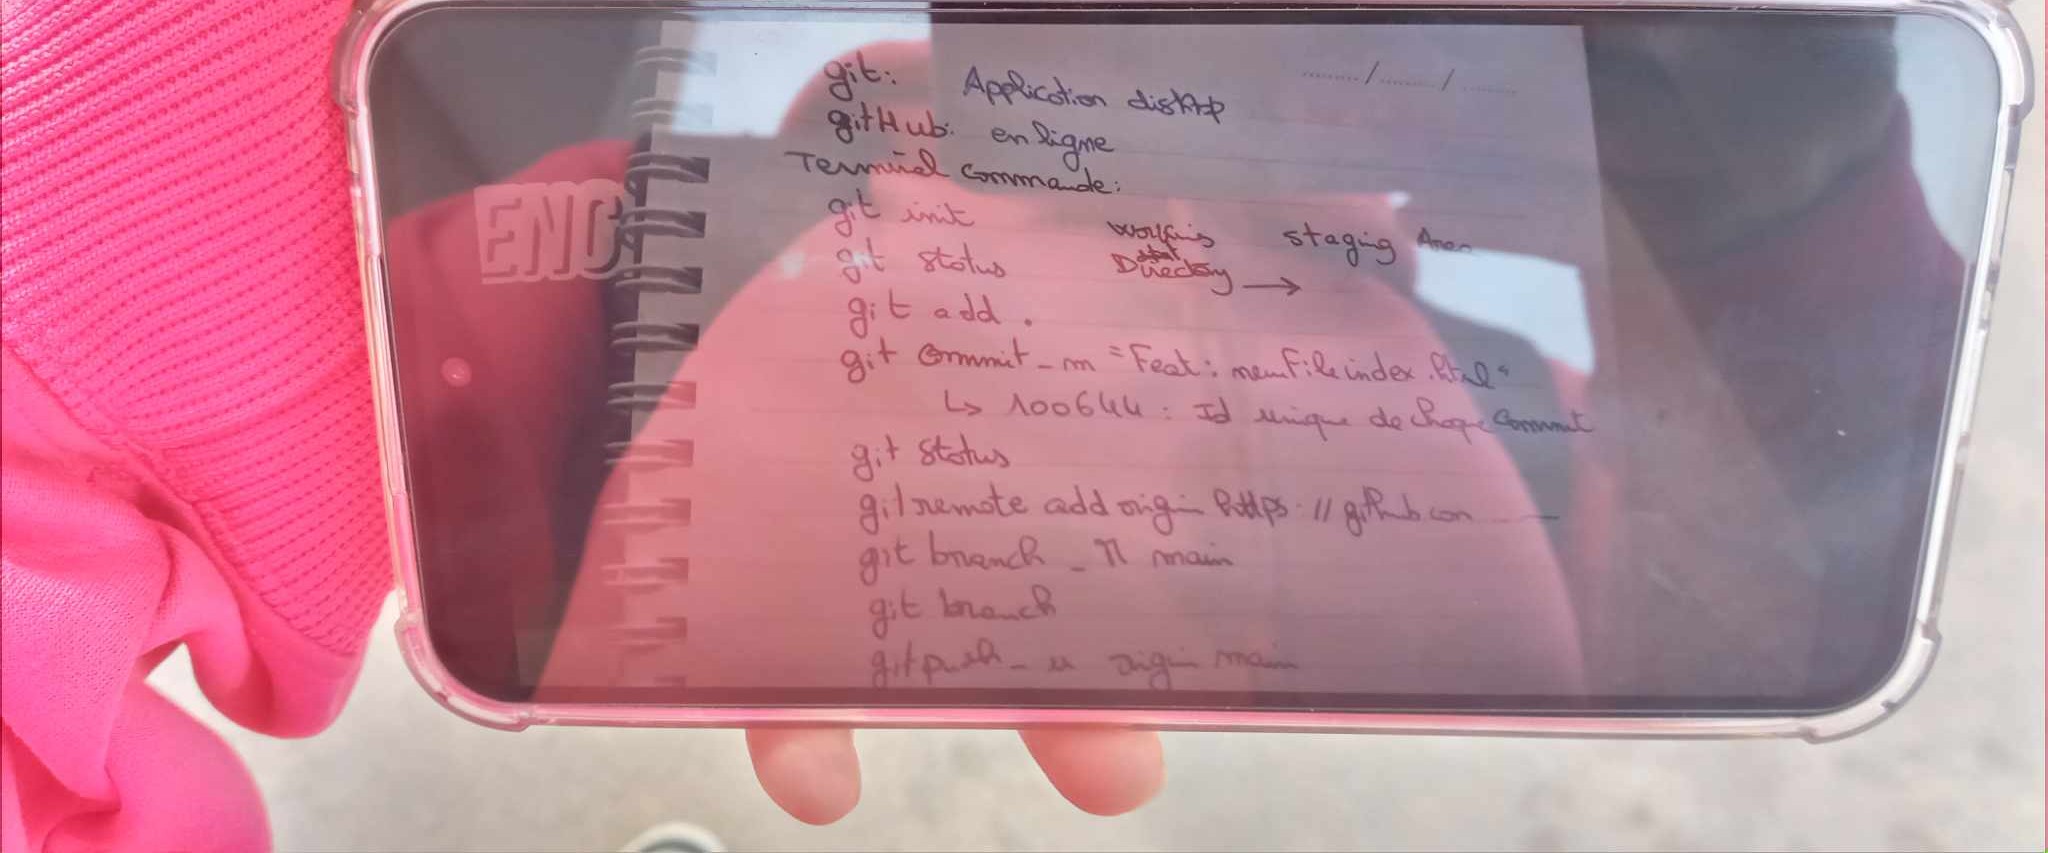 git: Application disktop
....... / ....... / .......
gitHub: en ligne
Terminal commande:
git init
working Directory → staging Area
git status
git add .
git commit _ m "Feat: new File index.html"
↳ 100644 : Id unique de chaque commit
git status
git remote add origin https://github.com ___
git branch _ M main
git branch
git push _ u origin main
ENC